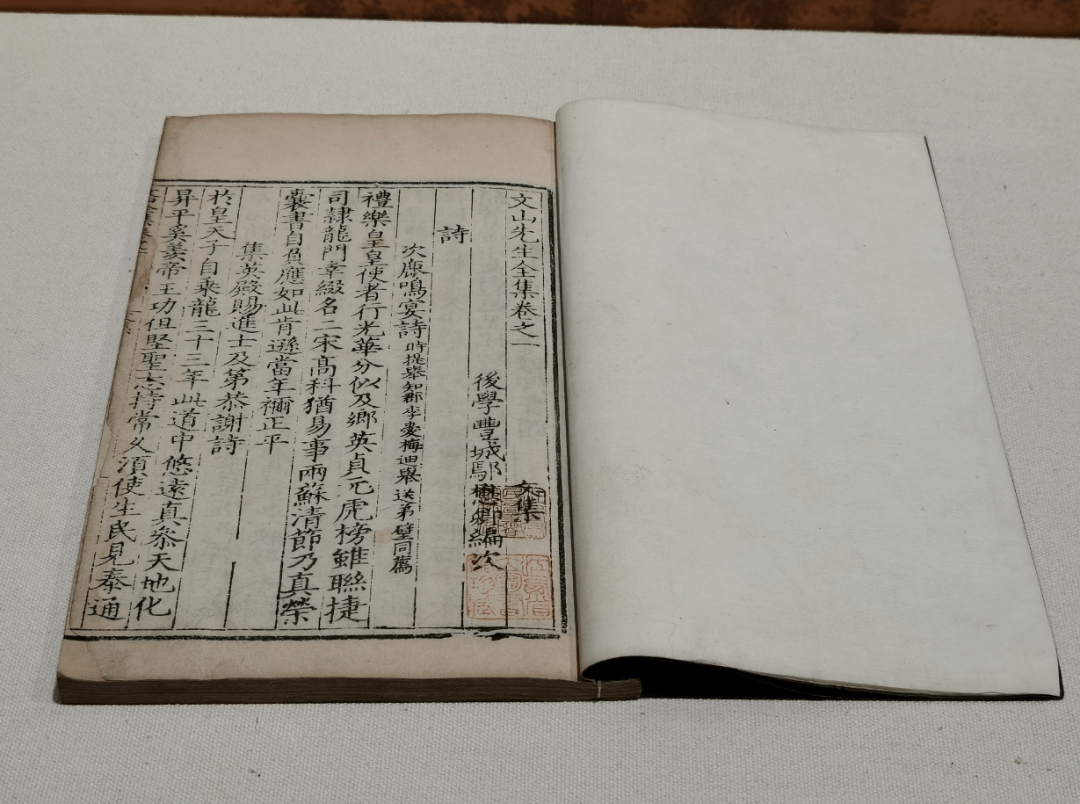 文山先生全集卷之一
文集
後學豐城鄢懋卿編次
詩
次鹿鳴宴詩 時提舉知郡李愛梅迪舉送弟璧同薦
禮樂皇皇使者行光華分似及鄉英貞元虎榜雖聯捷
司隸龍門幸綴名二宋高科猶易事兩蘇清節乃真榮
囊書自負應如此肯遜當年禰正平
集英殿賜進士及第恭謝詩
於皇天子自乘龍三十三年此道中悠遠真叅天地化
昇平奚羨帝王功但堅聖志持常久須使生民見泰通